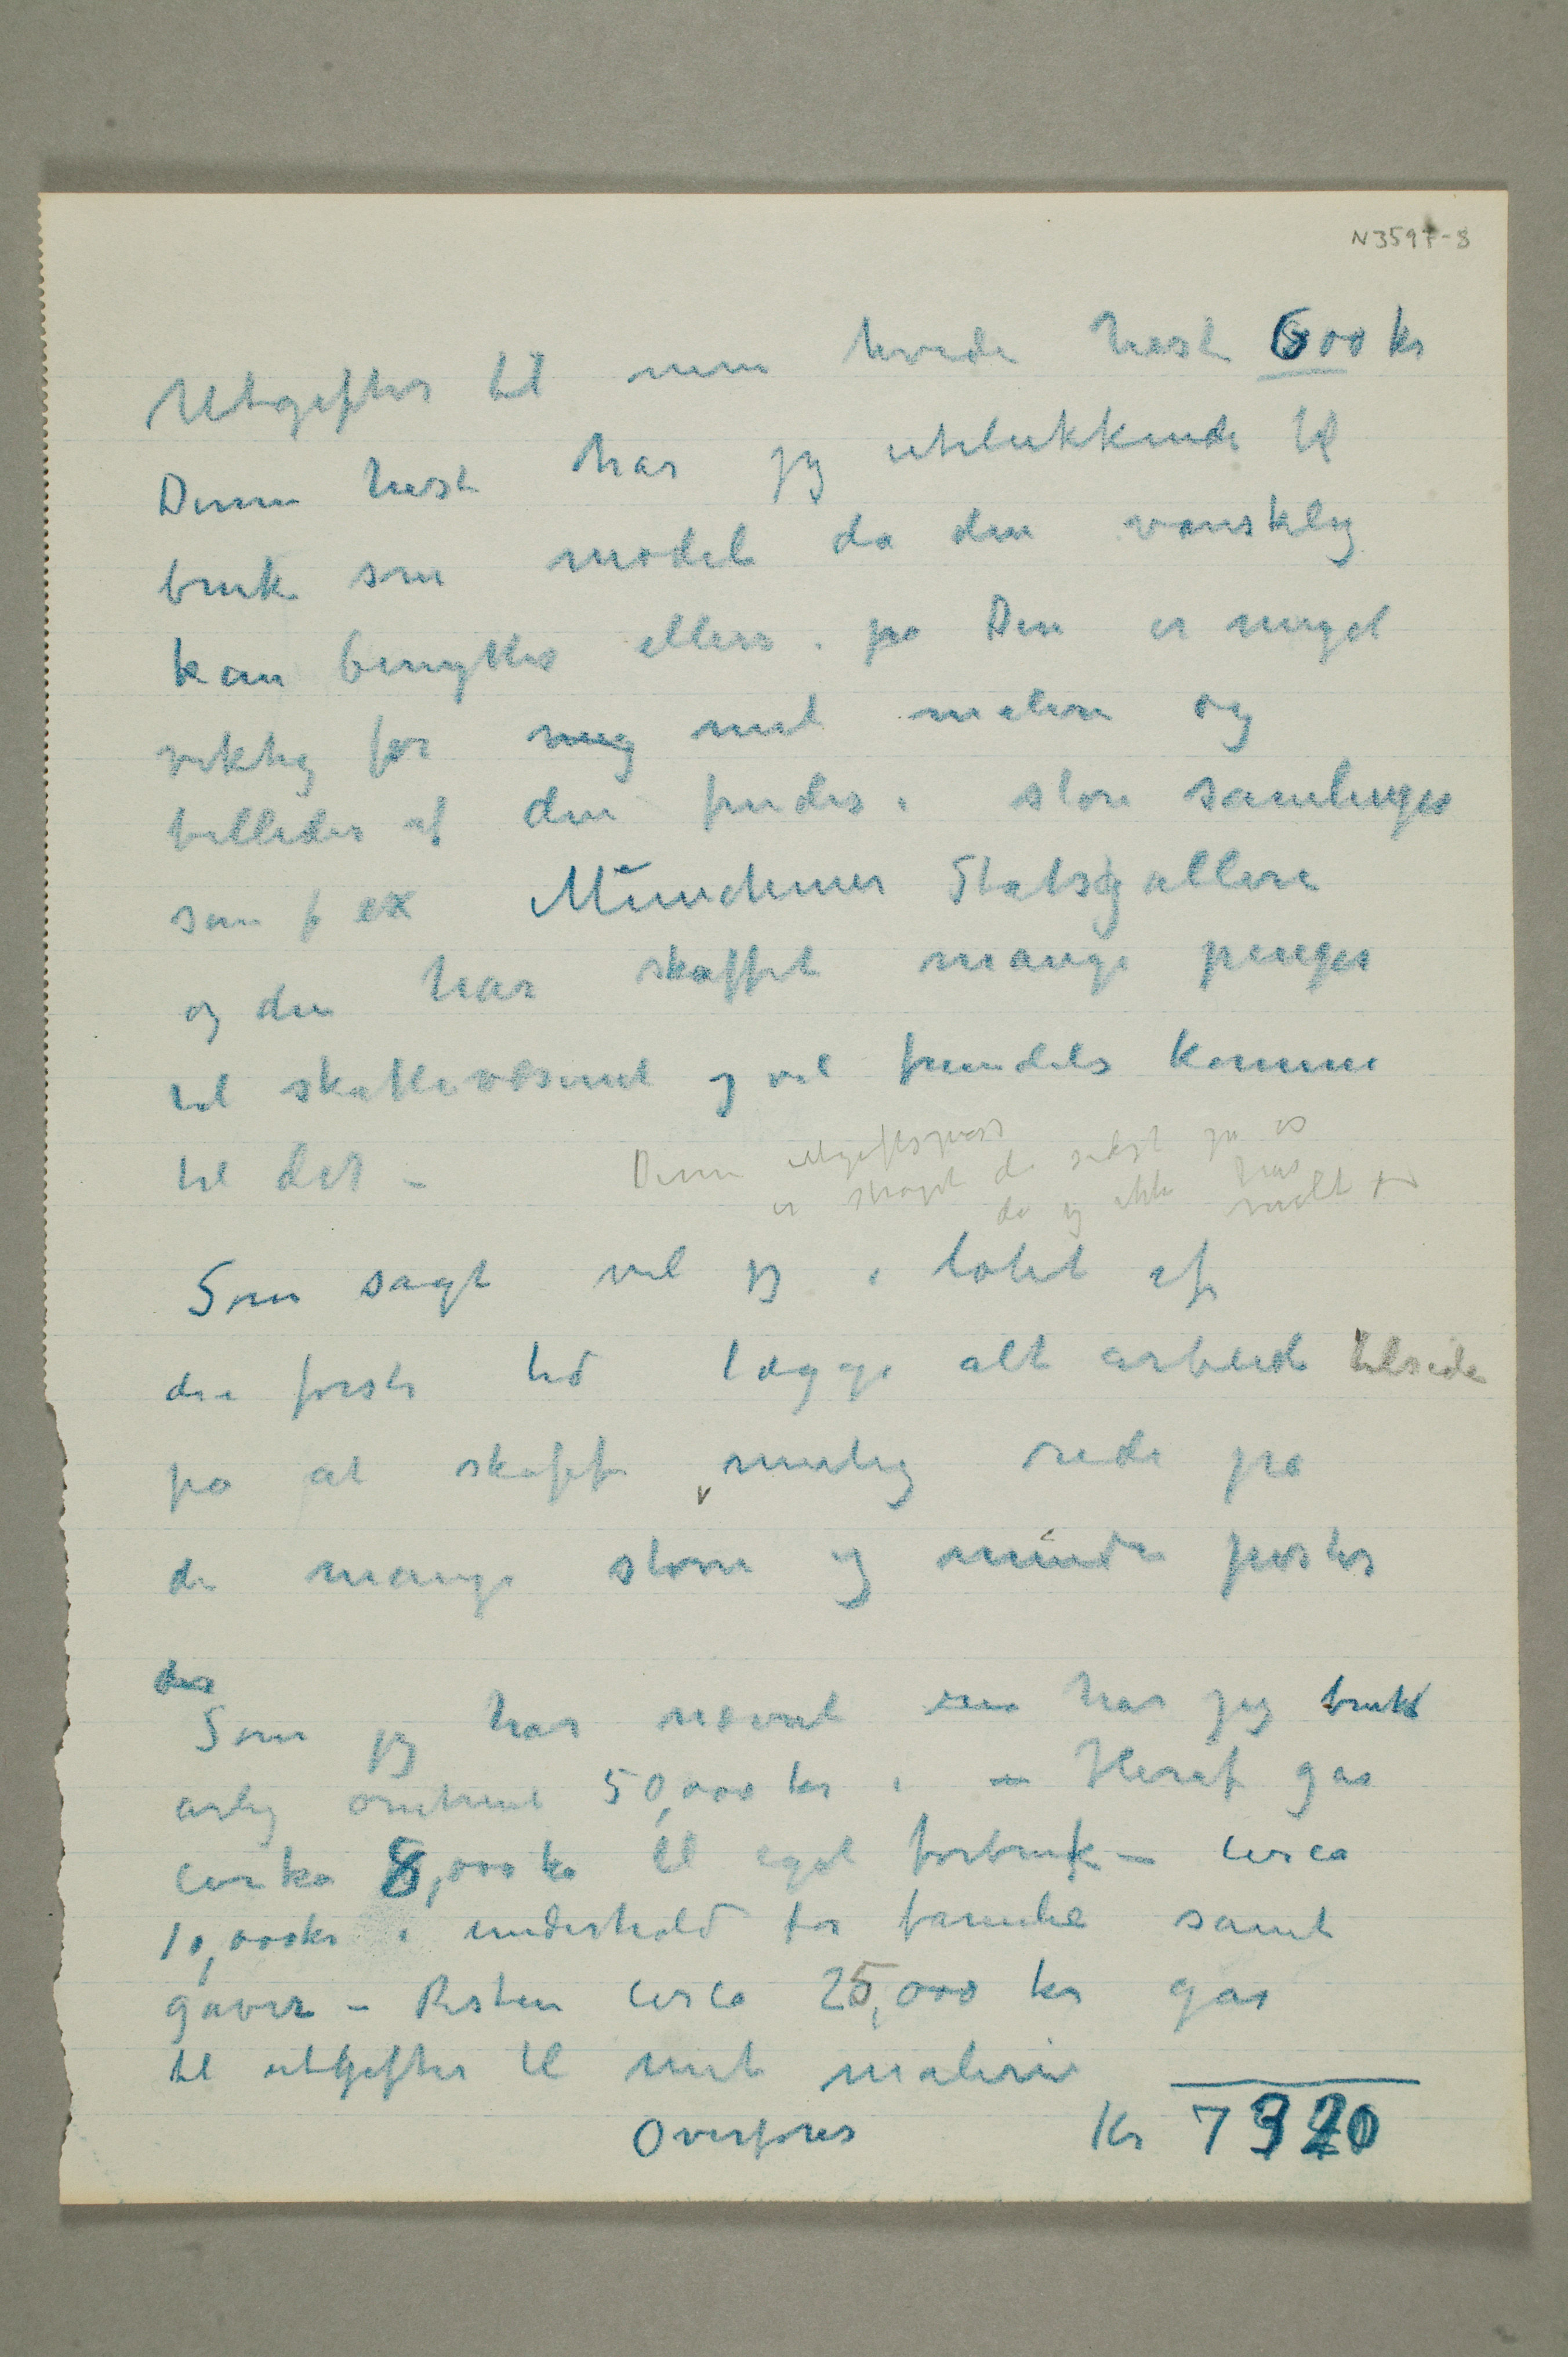 N3597-8
Utgifter til min hvide hest 600 kr
Denne hest har jeg utelukkende til
bruk som model da den vanskelig
kan benyttes ellers. på Den er meget
viktig for meg mit maleri og
billeder af den findes i store samlinger
som f ex Münchener Statsgalleri
og den har skaffet mange penger
til skattevæsenet og vil fremdeles komme
til det –
Denne utgiftspost
er strøget da
da jeg ikke har malt
Som sagt vil jeg i løbet af
den første tid lægge alt arbeide tilside
på at skaffe mulig rede på
de mange større og mindre poster
der
Som jeg har nævnt har jeg brukt
årlig omtrent 50,000 kr i – Heraf går
cirka 8,000 kr til eget forbruk – circa
10,000 kr i underhold for familie samt
gaver – Resten circa 25,000 kr går
til utgifter til mit maleri
Overføres Kr 7320